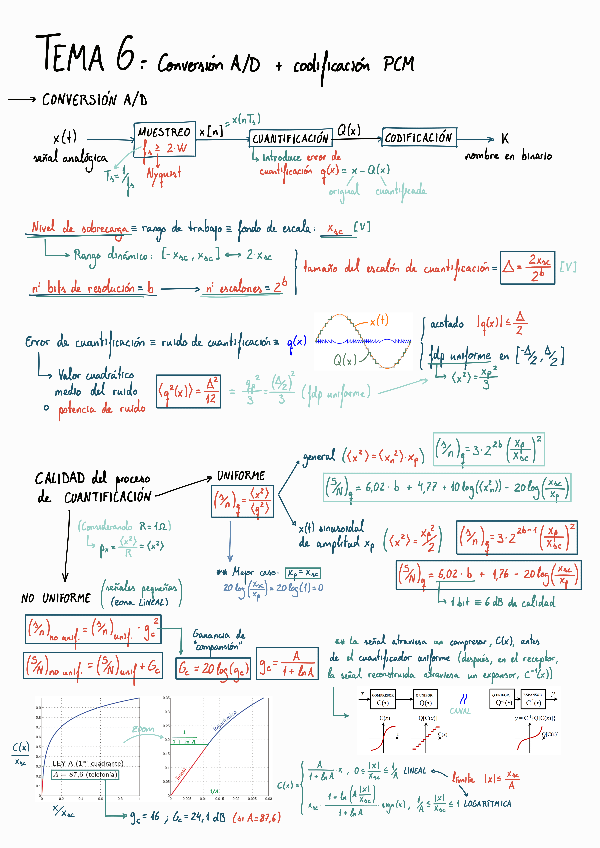 TEMA 6: Conversión A/D + codificación PCM
→ CONVERSIÓN A/D
x(t) → MUESTREO fs ≥ 2·W → x[n] = x(nTs) → CUANTIFICACIÓN → Q(x) → CODIFICACIÓN → K
señal analógica
nombre en binario
Ts = 1/fs
Nyquist
↳ Introduce error de
cuantificación q(x) = x - Q(x)
original cuantificada
Nivel de sobrecarga ≡ rango de trabajo ≡ fondo de escala: xsc [V]
→ Rango dinámico: [-xsc, xsc] ↔ 2·xsc
nº bits de resolución = b → nº escalones = 2^b
tamaño del escalón de cuantificación = Δ = 2xsc/2^b [V]
Error de cuantificación ≡ ruido de cuantificación ≡ q(x)
x(t)
Q(x)
acotado |q(x)| ≤ Δ/2
fdp uniforme en [-Δ/2, Δ/2]
↳ ⟨x²⟩ = xp²/3
→ Valor cuadrático
medio del ruido
o potencia de ruido
⟨q²(x)⟩ = Δ²/12 = qp²/3 = (Δ/2)²/3 (fdp uniforme)
CALIDAD del proceso
de CUANTIFICACIÓN
UNIFORME
(s/n)q = ⟨x²⟩/⟨q²⟩
general (⟨x²⟩ = ⟨xn²⟩·xp) (s/n)q = 3·2^2b (xp/xsc)²
(S/N)q = 6,02·b + 4,77 + 10log(⟨xn²⟩) - 20log(xsc/xp)
x(t) sinusoidal
de amplitud xp (⟨x²⟩ = xp²/2) (s/n)q = 3·2^(2b-1) (xp/xsc)²
(S/N)q = 6,02·b + 1,76 - 20log(xsc/xp)
↳ 1 bit ≡ 6 dB de calidad
(Considerando R=1Ω)
↳ px = ⟨x²⟩/R = ⟨x²⟩
** Mejor caso: xp = xsc
20log(xsc/xp) = 20log(1) = 0
NO UNIFORME
(señales pequeñas)
(zona LINEAL)
(s/n)no unif. = (s/n)unif. · gc²
(S/N)no unif. = (S/N)unif + Gc
Ganancia de
"compansión"
Gc = 20log(gc)
gc = A/(1+lnA)
** la señal atraviesa un compresor, C(x), antes
de el cuantificador uniforme (después, en el receptor,
la señal reconstruida atraviesa un expansor, C⁻¹(x))
CANAL
C(x)
Q(C(x))
y=C⁻¹(Q(C(x)))
C(x)/xsc
LEY A (1er cuadrante)
A = 87,6 (telefonía)
x/xsc
ZOOM
logarítmica
lineal
1/A
→ gc = 16 ; Gc = 24,1 dB (si A=87,6)
C(x) = { A/(1+lnA)·x, 0 ≤ |x|/xsc ≤ 1/A LINEAL
xsc · (1+ln(A|x|/xsc))/(1+lnA) · sign(x), 1/A ≤ |x|/xsc ≤ 1 LOGARÍTMICA
límite |x| ≤ xsc/A